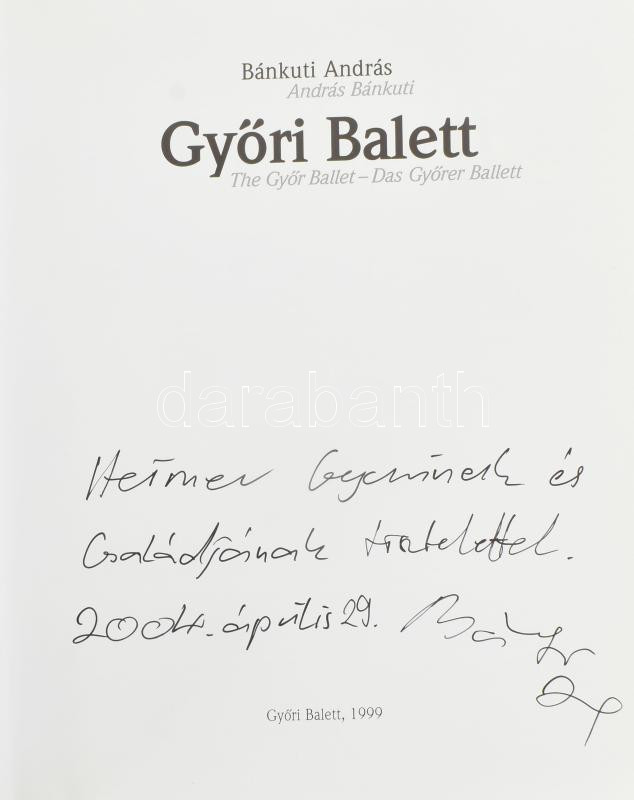 Bánkuti András
András Bánkuti
Győri Balett
The Győr Ballet – Das Győrer Ballett
darabanth
és
Családjának tisztelettel.
2004. április 29.
Győri Balett, 1999